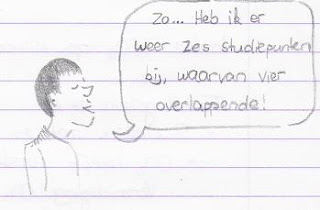 Zo... Heb ik er
weer zes studiepunten
bij, waarvan vier
overlappende!